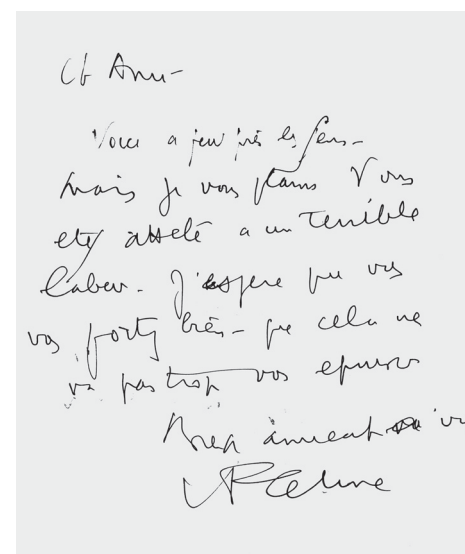 Ch Ami -
Voici a peu près le sens -
mais je vous plains Vous
etes attelé a un terrible
labeur - J'espere que vous
vous portez bien - que cela ne
va pas trop vous epuiser
Bien amicalt a vous
LF Celine